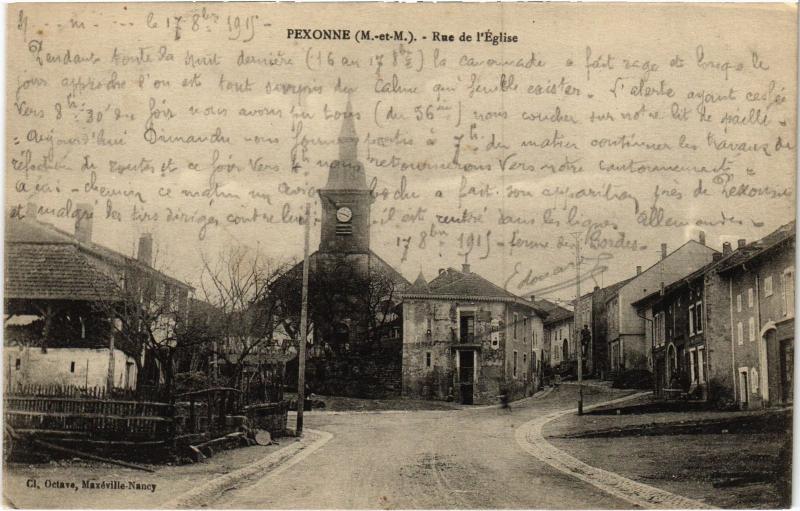 le 17 8bre 1915 -
PEXONNE (M.-et-M.). - Rue de l'Église
Pendant toute la nuit dernière (16 au 17 8bre) la canonnade a fait rage et lorsque le
jour approche l'on est tout surpris du calme qui semble exister - L'alerte ayant cessée
vers 8h 30' du soir nous avons pu tous (du 36ème) nous coucher sur notre lit de paille -
Aujourd'hui Dimanche nous sommes partis à 7h du matin continuer les travaux de
réfection de routes et ce soir vers 4h nous retournerons vers notre cantonnement -
À mi-chemin ce matin un avion boche a fait son apparition près de Pexonne
et malgré les tirs dirigés contre lui - il est rentré dans les lignes Allemandes -
17 8bre 1915 - ferme des Bordes -
Edouard
Cl. Octave, Maxéville-Nancy